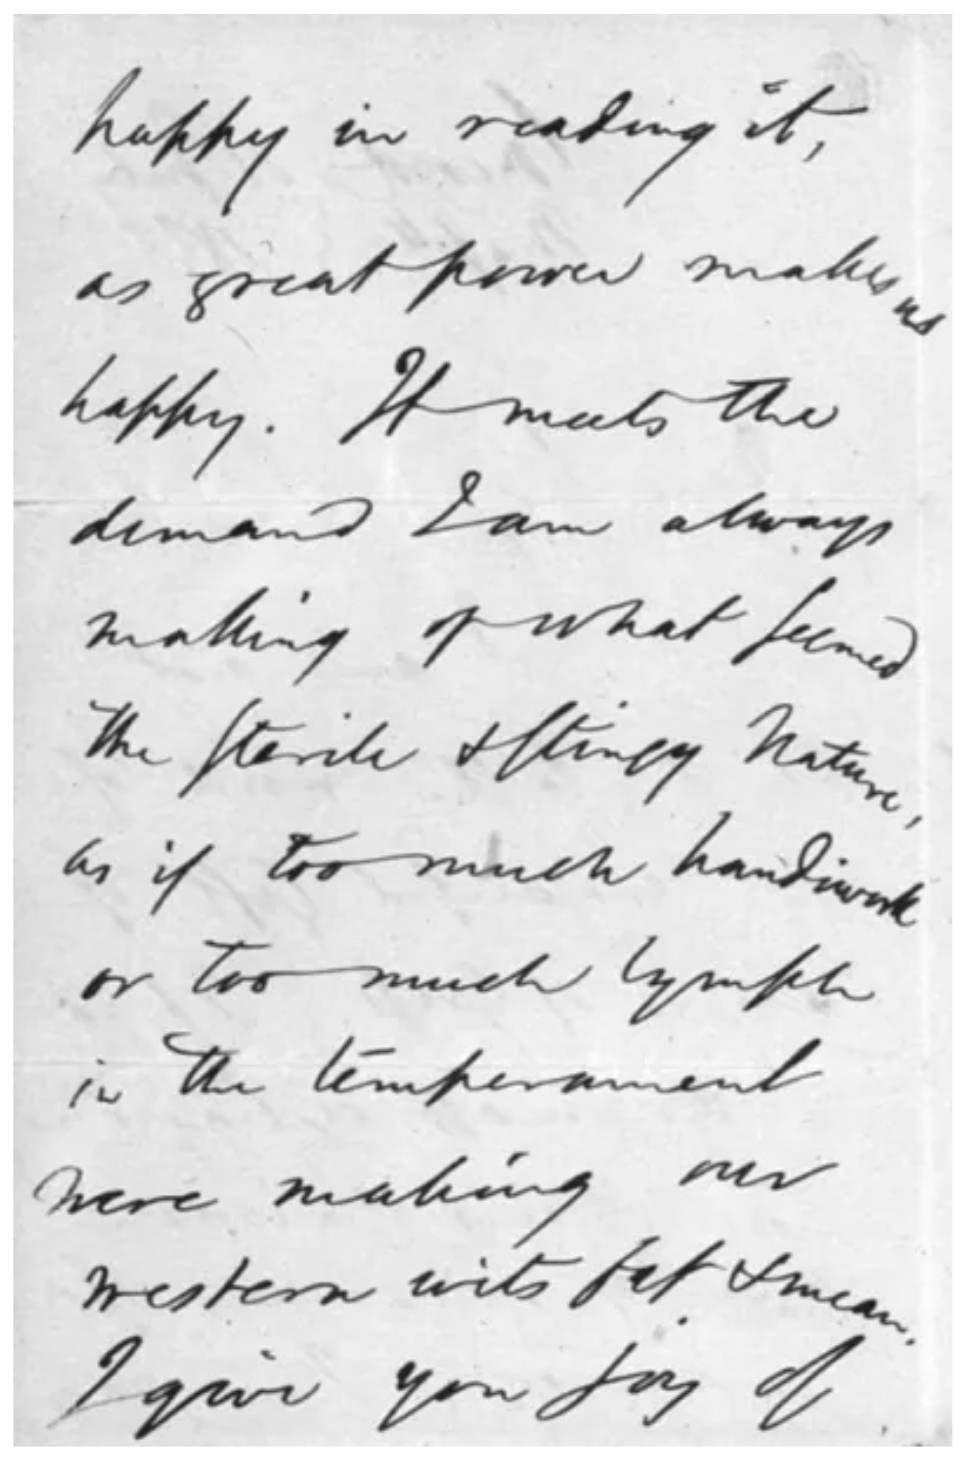 happy in reading it,
as great power makes us
happy. It meets the
demand I am always
making of what seemed
the sterile & stingy Nature,
as if too much handiwork
or too much lymph
in the temperament
were making our
western wits fat & mean.
I give you joy of